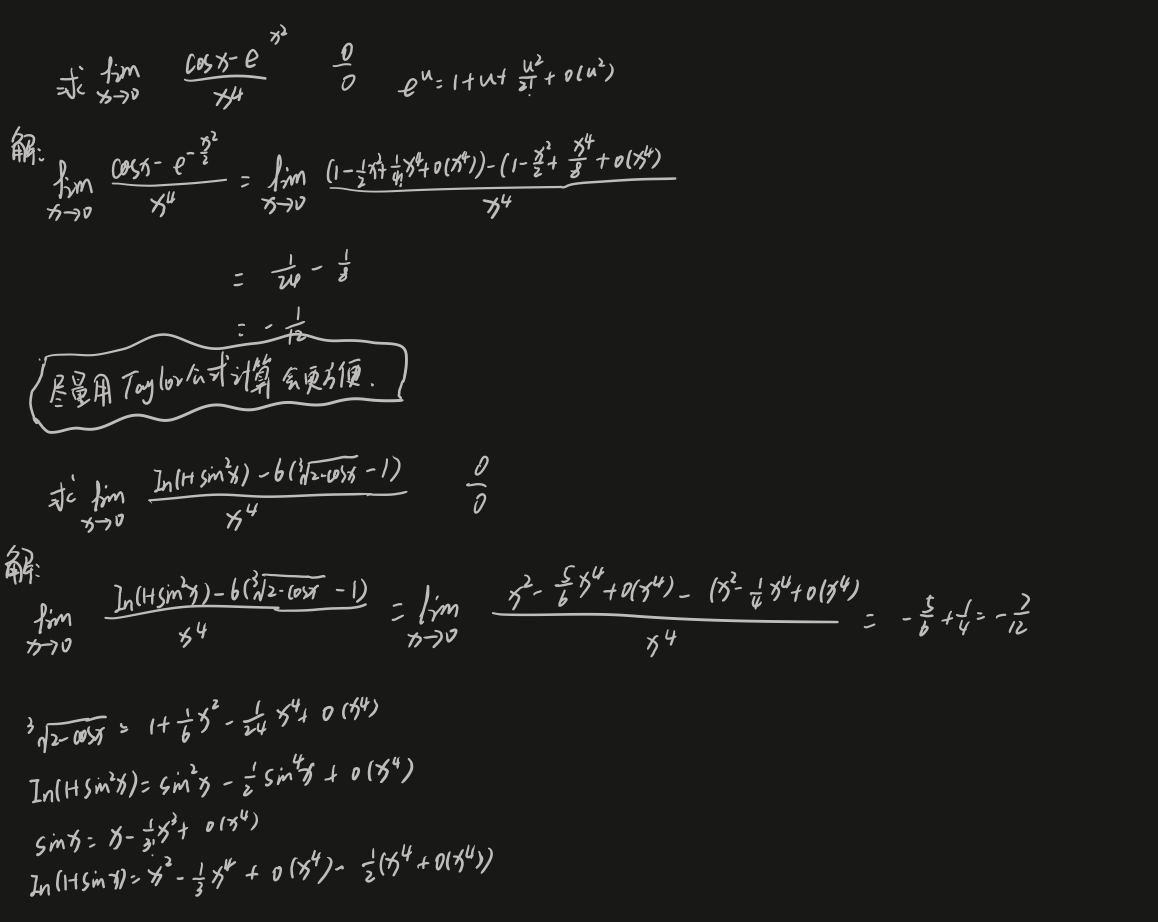 求 lim x→0 (cosx - e^{x^2}) / x^4    0/0    e^u = 1 + u + u^2/2! + o(u^2)
解: lim x→0 (cosx - e^{-x^2/2}) / x^4 = lim x→0 ((1 - 1/2 x^2 + 1/4! x^4 + o(x^4)) - (1 - x^2/2 + x^4/8 + o(x^4)) / x^4
= 1/24 - 1/8
= - 1/12
尽量用 Taylor公式计算 会更方便.
求 lim x→0 (ln(1+sin^2x) - 6(∛(2-cosx) - 1)) / x^4    0/0
解: lim x→0 (ln(1+sin^2x) - 6(∛(2-cosx) - 1)) / x^4 = lim x→0 (x^2 - 5/6 x^4 + o(x^4) - (x^2 - 1/4 x^4 + o(x^4)) / x^4 = - 5/6 + 1/4 = - 7/12
∛(2-cosx) = 1 + 1/6 x^2 - 1/24 x^4 + o(x^4)
ln(1+sin^2x) = sin^2x - 1/2 sin^4x + o(x^4)
sinx = x - 1/3! x^3 + o(x^4)
ln(1+sinx) = x^2 - 1/3 x^4 + o(x^4) - 1/2 (x^4 + o(x^4))